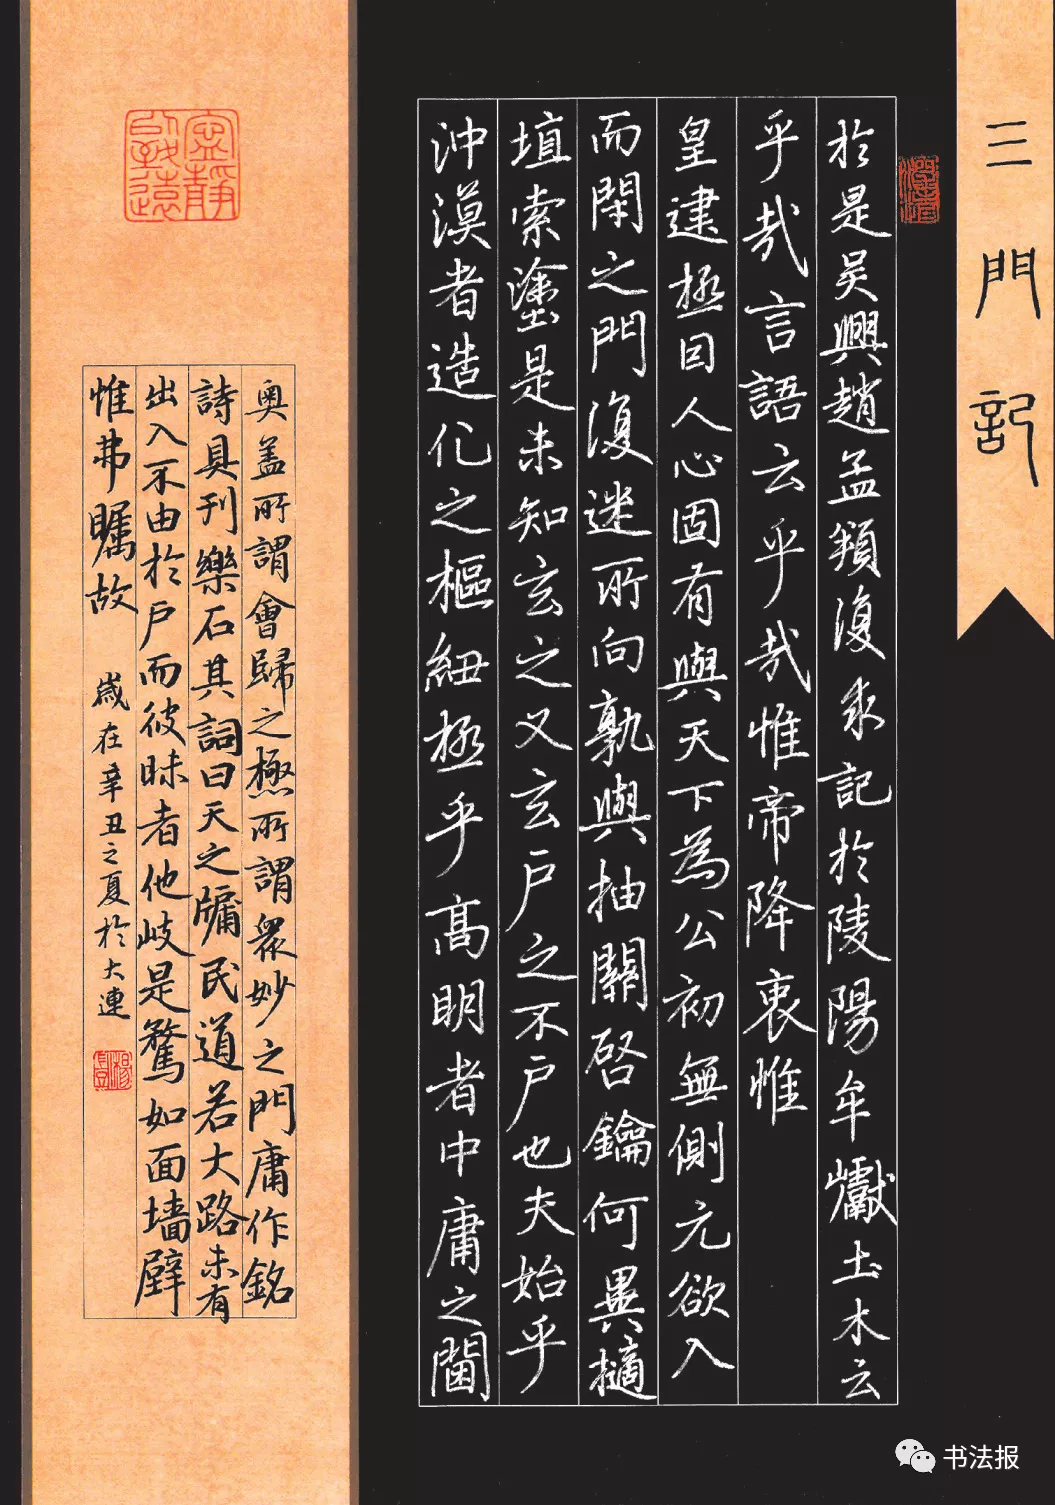 三門記
於是吳興趙孟頫復求記於陵陽牟巘土木云
乎哉言語云乎哉惟帝降衷惟
皇建極囙人心固有與天下為公初無側元欲入
而閇之門復迷所向孰與抽關啓鑰何異擿
埴索塗是未知玄之又玄戶之不戶也夫始乎
沖漠者造化之樞紐極乎高明者中庸之閫
寧靜致遠
奥盖所謂會歸之極所謂衆妙之門庸作銘
詩具刊樂石其詞曰天之牖民道若大路未有
出入不由於戶而彼昧者他岐是騖如面墙壁
惟弗矚故
歲在辛丑之夏於大連
书法报